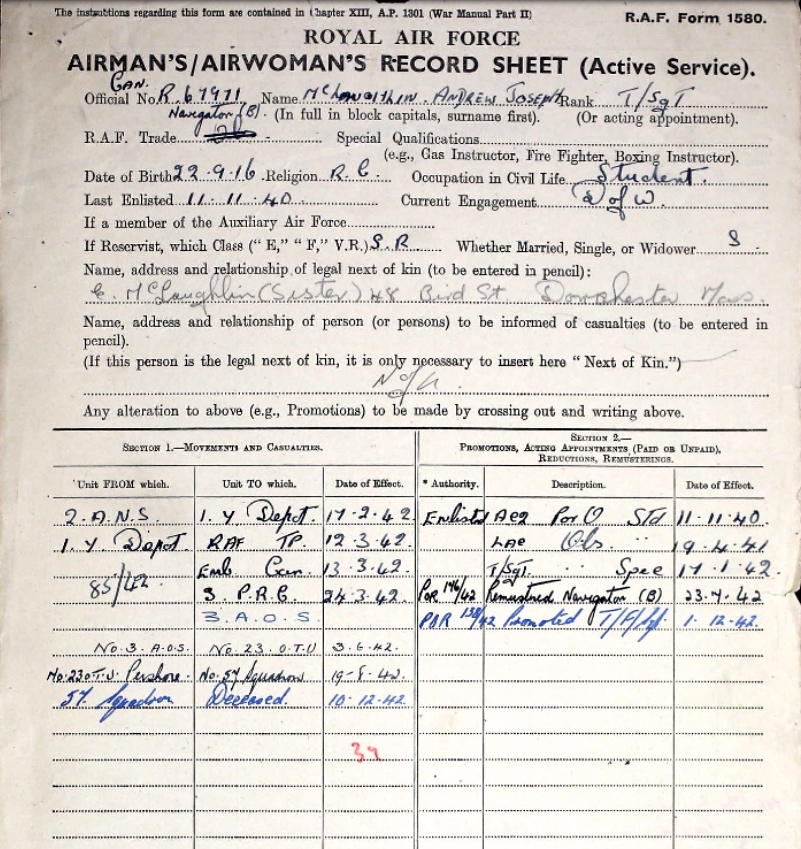 The instructions regarding this form are contained in Chapter XIII, A.P. 1301 (War Manual Part II)
R.A.F. Form 1580.
ROYAL AIR FORCE
AIRMAN'S/AIRWOMAN'S RECORD SHEET (Active Service).
CAN.
Official No. R.67971 Name McLAUGHLIN. ANDREW JOSEPH Rank T/SgT
Navigator (B). (In full in block capitals, surname first). (Or acting appointment).
R.A.F. Trade Special Qualifications
(e.g., Gas Instructor, Fire Fighter, Boxing Instructor).
Date of Birth 22.9.16 Religion R.C. Occupation in Civil Life Student.
Last Enlisted 11.11.40 Current Engagement D of W.
If a member of the Auxiliary Air Force
If Reservist, which Class ("E," "F," V.R.) S.R. Whether Married, Single, or Widower S
Name, address and relationship of legal next of kin (to be entered in pencil):
E. McLaughlin (Sister) 48 Bird St. Dorchester Mass.
Name, address and relationship of person (or persons) to be informed of casualties (to be entered in
pencil).
(If this person is the legal next of kin, it is only necessary to insert here "Next of Kin.")
Any alteration to above (e.g., Promotions) to be made by crossing out and writing above.
SECTION 1.—MOVEMENTS AND CASUALTIES.
SECTION 2.—
PROMOTIONS, ACTING APPOINTMENTS (PAID OR UNPAID),
REDUCTIONS, REMUSTERINGS.
Unit FROM which. Unit TO which. Date of Effect. * Authority. Description. Date of Effect.
2. A.N.S. 1. Y Depot. 17.2.42 Enlisted AC2 P or O Std 11.11.40.
1. Y. Depot RAF TP. 12.3.42. LAC Obs. " 19.4.41
Emb Can. 13.3.42. T/Sgt. " Spec 17.1.42.
85/42 3. P.R.C. 24.3.42. POR 146/42 Remustered Navigator (B) 23.7.42
3.A.O.S. POR 138/42 Promoted T/F/Sgt. 1.12.42.
No.3.A.O.S. No.23.O.T.U 3.6.42.
No.23 O.T.U. Pershore. No.57 Squadron 19.8.42.
57 Squadron Deceased. 10.12.42.
39